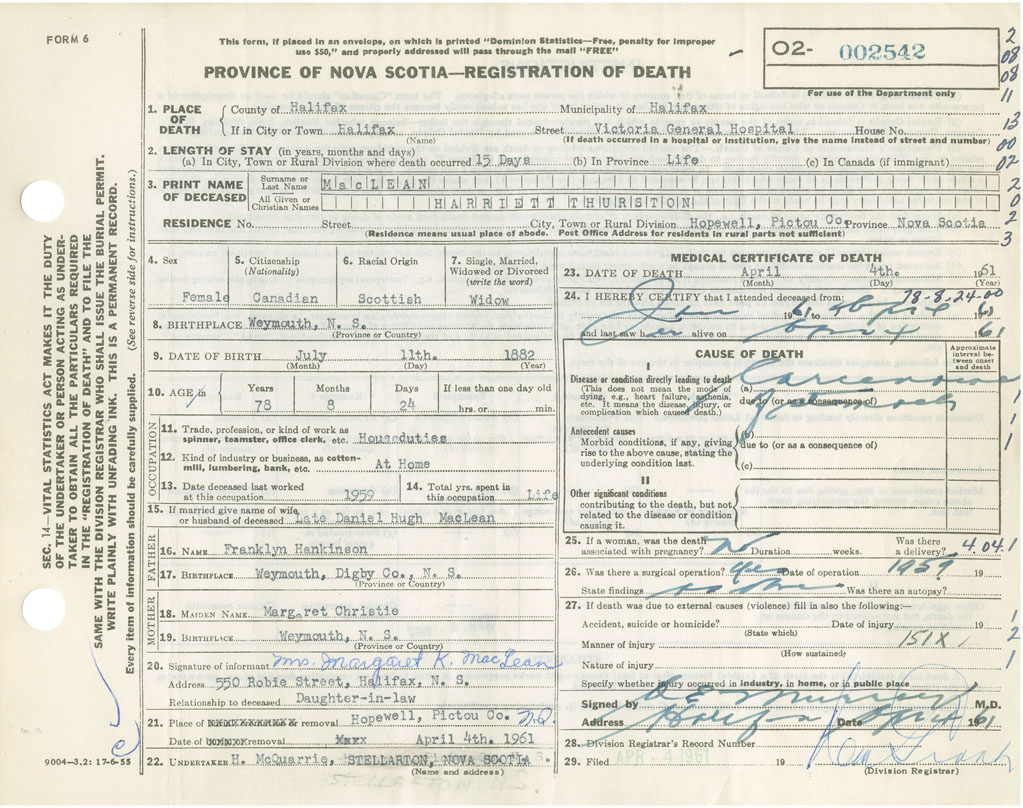 FORM 6
This form, if placed in an envelope, on which is printed "Dominion Statistics—Free, penalty for improper
use $50," and properly addressed will pass through the mail "FREE"
PROVINCE OF NOVA SCOTIA—REGISTRATION OF DEATH
O2- 002542
For use of the Department only
SEC. 14—VITAL STATISTICS ACT MAKES IT THE DUTY
OF THE UNDERTAKER OR PERSON ACTING AS UNDER-
TAKER TO OBTAIN ALL THE PARTICULARS REQUIRED
IN THE "REGISTRATION OF DEATH" AND TO FILE THE
SAME WITH THE DIVISION REGISTRAR WHO SHALL ISSUE THE BURIAL PERMIT.
WRITE PLAINLY WITH UNFADING INK. THIS IS A PERMANENT RECORD.
Every item of information should be carefully supplied. (See reverse side for instructions.)
1. PLACE OF DEATH
County of Halifax Municipality of Halifax
If in City or Town Halifax Street Victoria General Hospital House No.
(Name) (If death occurred in a hospital or institution, give the name instead of street and number)
2. LENGTH OF STAY (in years, months and days)
(a) In City, Town or Rural Division where death occurred 15 Days (b) In Province Life (c) In Canada (if immigrant)
3. PRINT NAME OF DECEASED
Surname or Last Name MacLEAN
All Given or Christian Names HARRIETT THURSTON
RESIDENCE No. Street City, Town or Rural Division Hopewell, Pictou Co. Province Nova Scotia
(Residence means usual place of abode. Post Office Address for residents in rural parts not sufficient)
4. Sex Female
5. Citizenship (Nationality) Canadian
6. Racial Origin Scottish
7. Single, Married, Widowed or Divorced (write the word) Widow
8. BIRTHPLACE Weymouth, N. S.
(Province or Country)
9. DATE OF BIRTH July 11th. 1882
(Month) (Day) (Year)
10. AGE Years Months Days If less than one day old
78 8 24 hrs. or min.
OCCUPATION
11. Trade, profession, or kind of work as
spinner, teamster, office clerk, etc. Houseduties
12. Kind of industry or business, as cotton-
mill, lumbering, bank, etc. At Home
13. Date deceased last worked
at this occupation 1959
14. Total yrs. spent in
this occupation Life
15. If married give name of wife
or husband of deceased Late Daniel Hugh MacLean
FATHER
16. NAME Franklyn Hankinson
17. BIRTHPLACE Weymouth, Digby Co., N. S.
(Province or Country)
MOTHER
18. MAIDEN NAME Margaret Christie
19. BIRTHPLACE Weymouth, N. S.
(Province or Country)
20. Signature of informant Mrs. Margaret K. MacLean
Address 550 Robie Street, Halifax, N. S.
Relationship to deceased Daughter-in-law
21. Place of removal Hopewell, Pictou Co. N.S.
Date of removal April 4th. 1961
22. UNDERTAKER H. McQuarrie, STELLARTON, NOVA SCOTIA
(Name and address)
9004—3.2: 17-6-55
MEDICAL CERTIFICATE OF DEATH
23. DATE OF DEATH April 4th. 1961
(Month) (Day) (Year)
78-8-24-00
24. I HEREBY CERTIFY that I attended deceased from:
Jan 1961 to April 4 1961
and last saw her alive on April 4 1961
CAUSE OF DEATH
Approximate interval between onset and death
I
Disease or condition directly leading to death
(This does not mean the mode of
dying, e.g., heart failure, asthenia,
etc. It means the disease, injury, or
complication which caused death.)
(a) Carcinoma
due to (or as a consequence of)
of stomach
Antecedent causes
Morbid conditions, if any, giving
rise to the above cause, stating the
underlying condition last.
(b)
due to (or as a consequence of)
(c)
II
Other significant conditions
contributing to the death, but not
related to the disease or condition
causing it.
25. If a woman, was the death
associated with pregnancy? No Duration weeks. Was there a delivery?
4.04.1
26. Was there a surgical operation? Yes Date of operation 1959 19
State findings Was there an autopsy?
27. If death was due to external causes (violence) fill in also the following:—
Accident, suicide or homicide? Date of injury 19
(State which)
151X
Manner of injury
(How sustained)
Nature of injury
Specify whether injury occurred in industry, in home, or in public place
Signed by M.D.
Address Halifax Date April 4 1961
28. Division Registrar's Record Number
29. Filed APR - 4 1961 19
(Division Registrar)
2
08
08
11
13
00
02
2
0
2
3
1
1
1
1
2
1